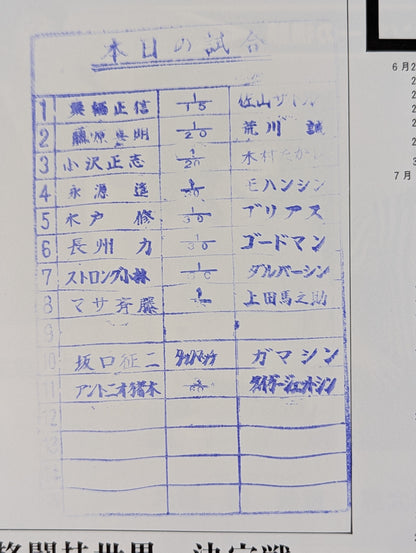 本日の試合
1 異幅正信 1/15 佐山サトル
2 藤原喜明 1/20 荒川 誠
3 小沢正志 1/20 木村たかし
4 永源 遥 1/30 モハンシン
5 木戸 修 1/30 ブリアス
6 長州 力 1/30 ゴードマン
7 ストロング小林 ダルバーシン
8 マサ斉藤 上田馬之助
9
10 坂口征二 タッグマッチ ガマシン
11 アントニオ猪木 タイガージェットシン
12
13
14
格闘技世界一決定戦
6月2
2
2
2
2
7月